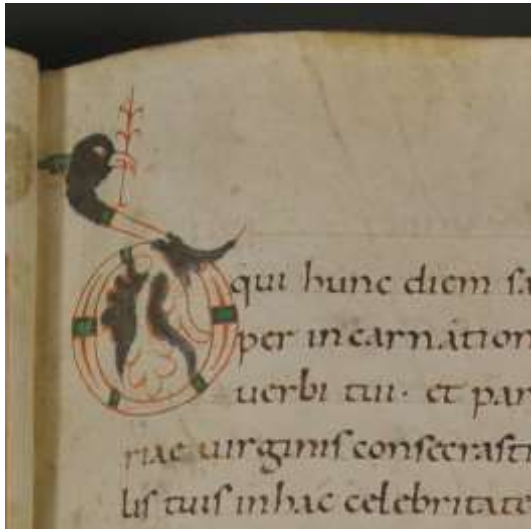 D
qui hunc diem sa
per incarnation
uerbi tui · et par
riae uirginis consecrasti
lis tuis in hac celebritate